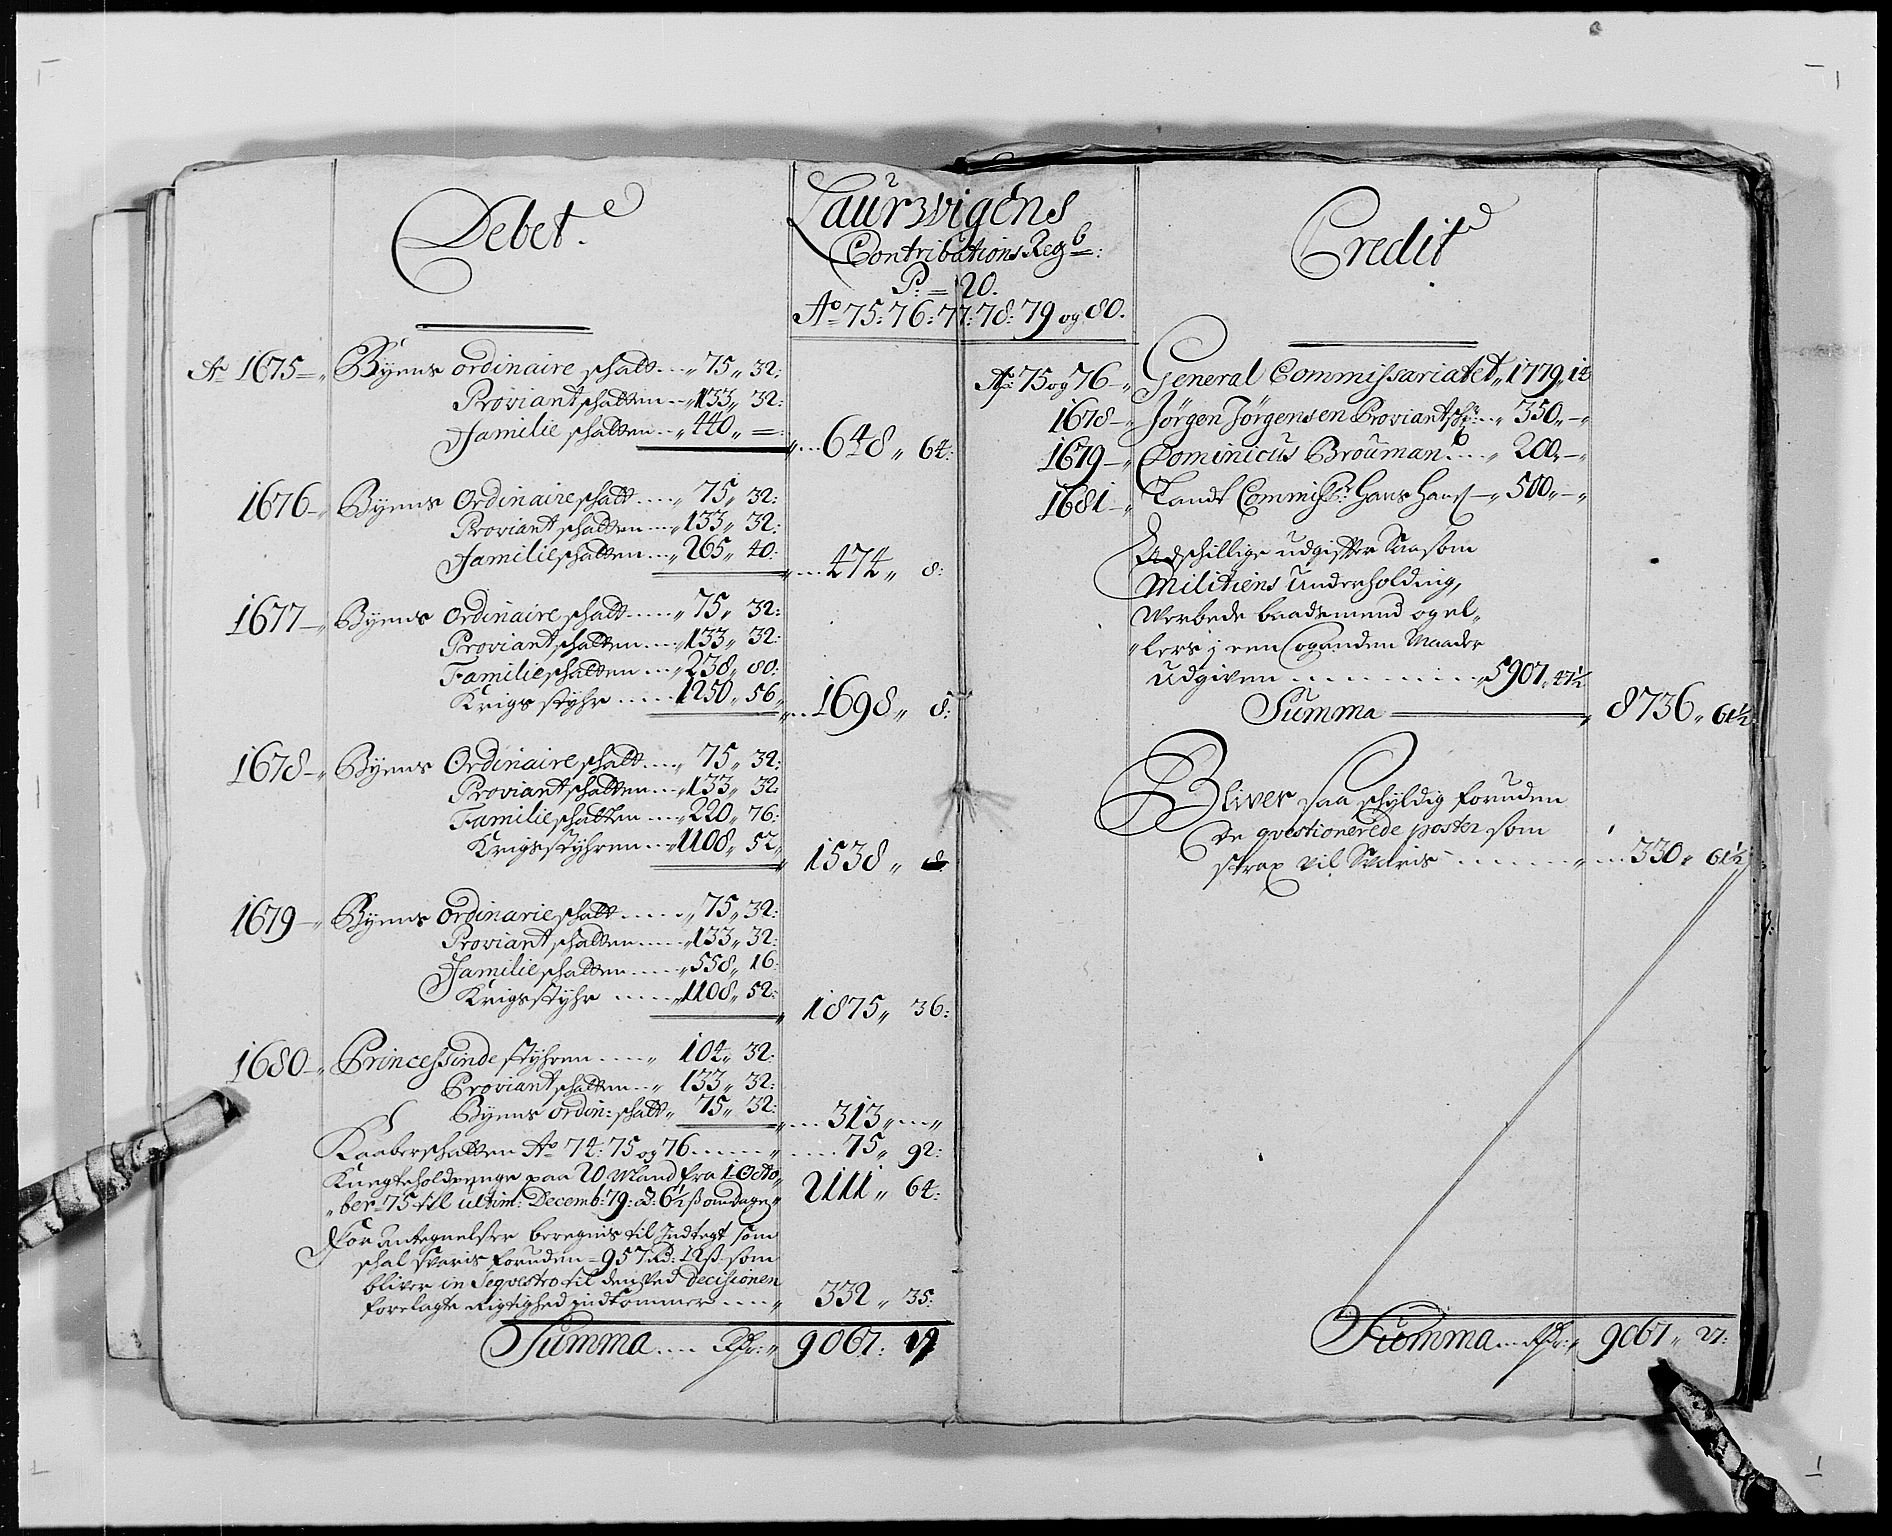 Debet.
Laurwigens
Contributions Regb:
P: = 20.
Ao 75: 76: 77: 78: 79 og 80.
Credit
Ao 1675 Byens ordinaire schatt .... 75 " 32:
Proviantschatten .. " 133 " 32:
Familieschatten .. " 440 " =:
" ... 648 " 64:
1676 Byens Ordinaire schatt .... " 75 " 32:
Proviantschatten .... " 133 " 32:
Familieschatten ... " 265 " 40:
" .... 474 " 8:
1677 Byens Ordinaire schatt ..... " 75 " 32:
Proviantschatten .... " 133 " 32:
Familieschatten .... " 238 " 80:
Krigsstyhr ..... 1250 " 56 "
" ... 1698 " 8:
1678 Byens Ordinaire schatt .... " 75 " 32:
Proviantschatten ... " 133 " 32
Familieschatten .... " 220 " 76:
Krigsstyhren ... " 1108 " 52 "
" 1538 " 8
1679 Byens ordinarie schatt ...... " 75 " 32:
Proviantschatten ..... " 133 " 32:
Familieschatten ..... " 558 " 16:
Krigsstyhr ..... " 1108 " 52:
" 1875 " 36:
1680 Princessinde styhren ..... " 104 " 32:
Proviantschatten .. " 133 " 32:
Byens ordin: schatt " 75 " 32:
" .... 313 " — "
Kaaberschatten Ao 74: 75 og 76 ...... " ..... 75 " 92:
Knegteholdpenge paa 20 Mand fra 1 Octo
"ber 75 til ultim: Decemb: 79: a: 6½ ß om dagen" 2111 " 64:
For antegnelser beregnis til Indtegt som
schal svaris foruden = 957 Rd: ß som
bliver in Seqvestro til den ved Decisionen
forelagte Rigtighed indkommer .... " 332 " 35:
Summa .... Rdr: " 9067: 27
Ao 75 og 76 General Commissariatet " 1779 " 14
1678 Jørgen Jørgensen Proviantschr: ... " 350 " — "
1679 Dominicus Brouman .... " 200 " — "
1681 Landt Commissr: Hans Hans " 500 " — "
Udschillige udgiffter Saasom
Militiens Underholding,
Verbede baadsmend og el,,
"lers i een og anden Maader
Udgiven ............ " 5907 " 47½
Summa " 8736 " 61½
Bliver saa schyldig foruden
De qvestionerede poster som
strax vil svaris ........ " .... 330 " 61½
Summa ... Rdr: " 9067 " 27: